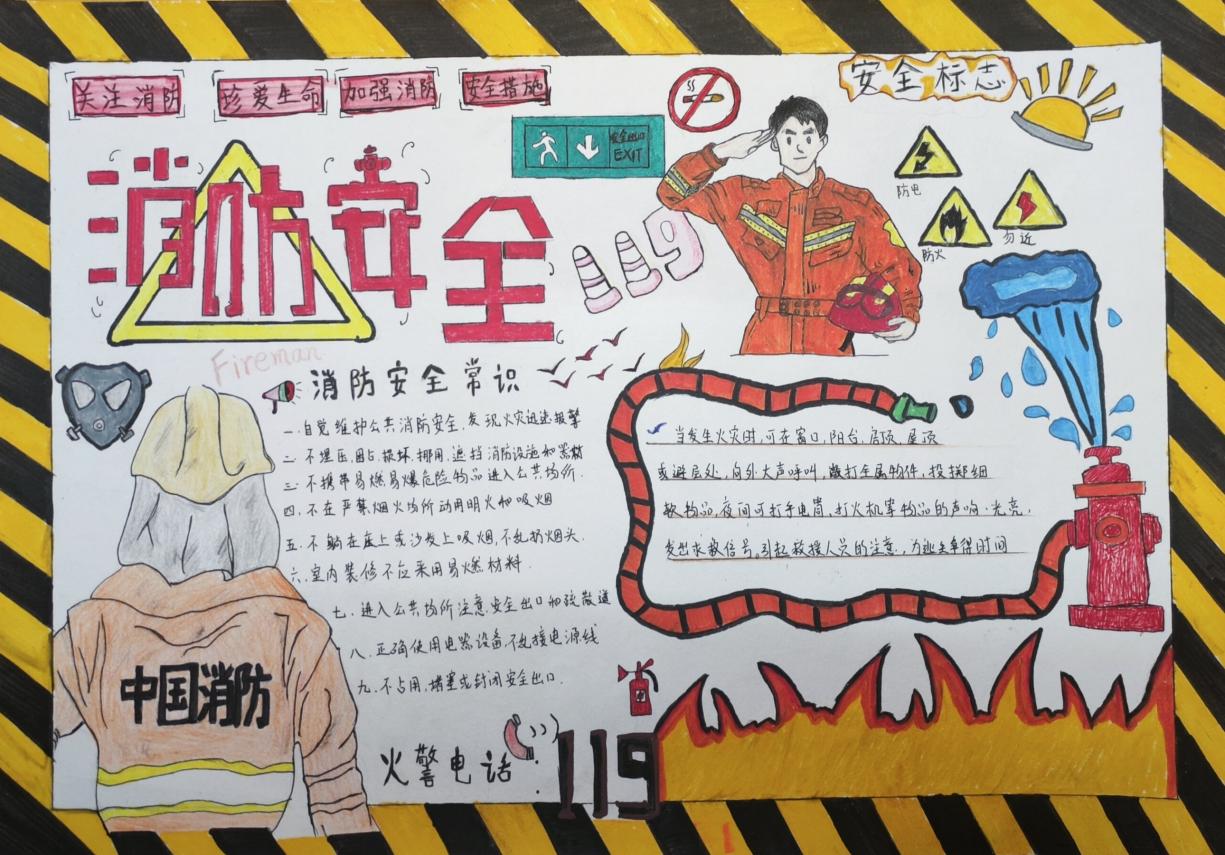 关注消防
珍爱生命
加强消防
安全措施
安全标志
安全出口
EXIT
消防安全
119
防电
防火
勿近
Fireman
消防安全常识
一.自觉维护公共消防安全,发现火灾迅速报警
二.不埋压,圈占,损坏,挪用,遮挡消防设施和器材
三.不携带易燃易爆危险物品进入公共场所.
四.不在严禁烟火场所动用明火和吸烟
五.不躺在床上或沙发上吸烟,不乱扔烟头.
六.室内装修不应采用易燃材料.
七.进入公共场所注意安全出口和疏散道
八.正确使用电器设备,不乱接电源线
九.不占用,堵塞或封闭安全出口.
当发生火灾时,可在窗口,阳台,房顶,屋顶
或避层处,向外大声呼叫,敲打金属物件,投掷细
软物品,夜间可打手电筒,打火机等物品的声响.光亮,
发出求救信号。引起救援人员的注意,为逃生争得时间
中国消防
火警电话:119